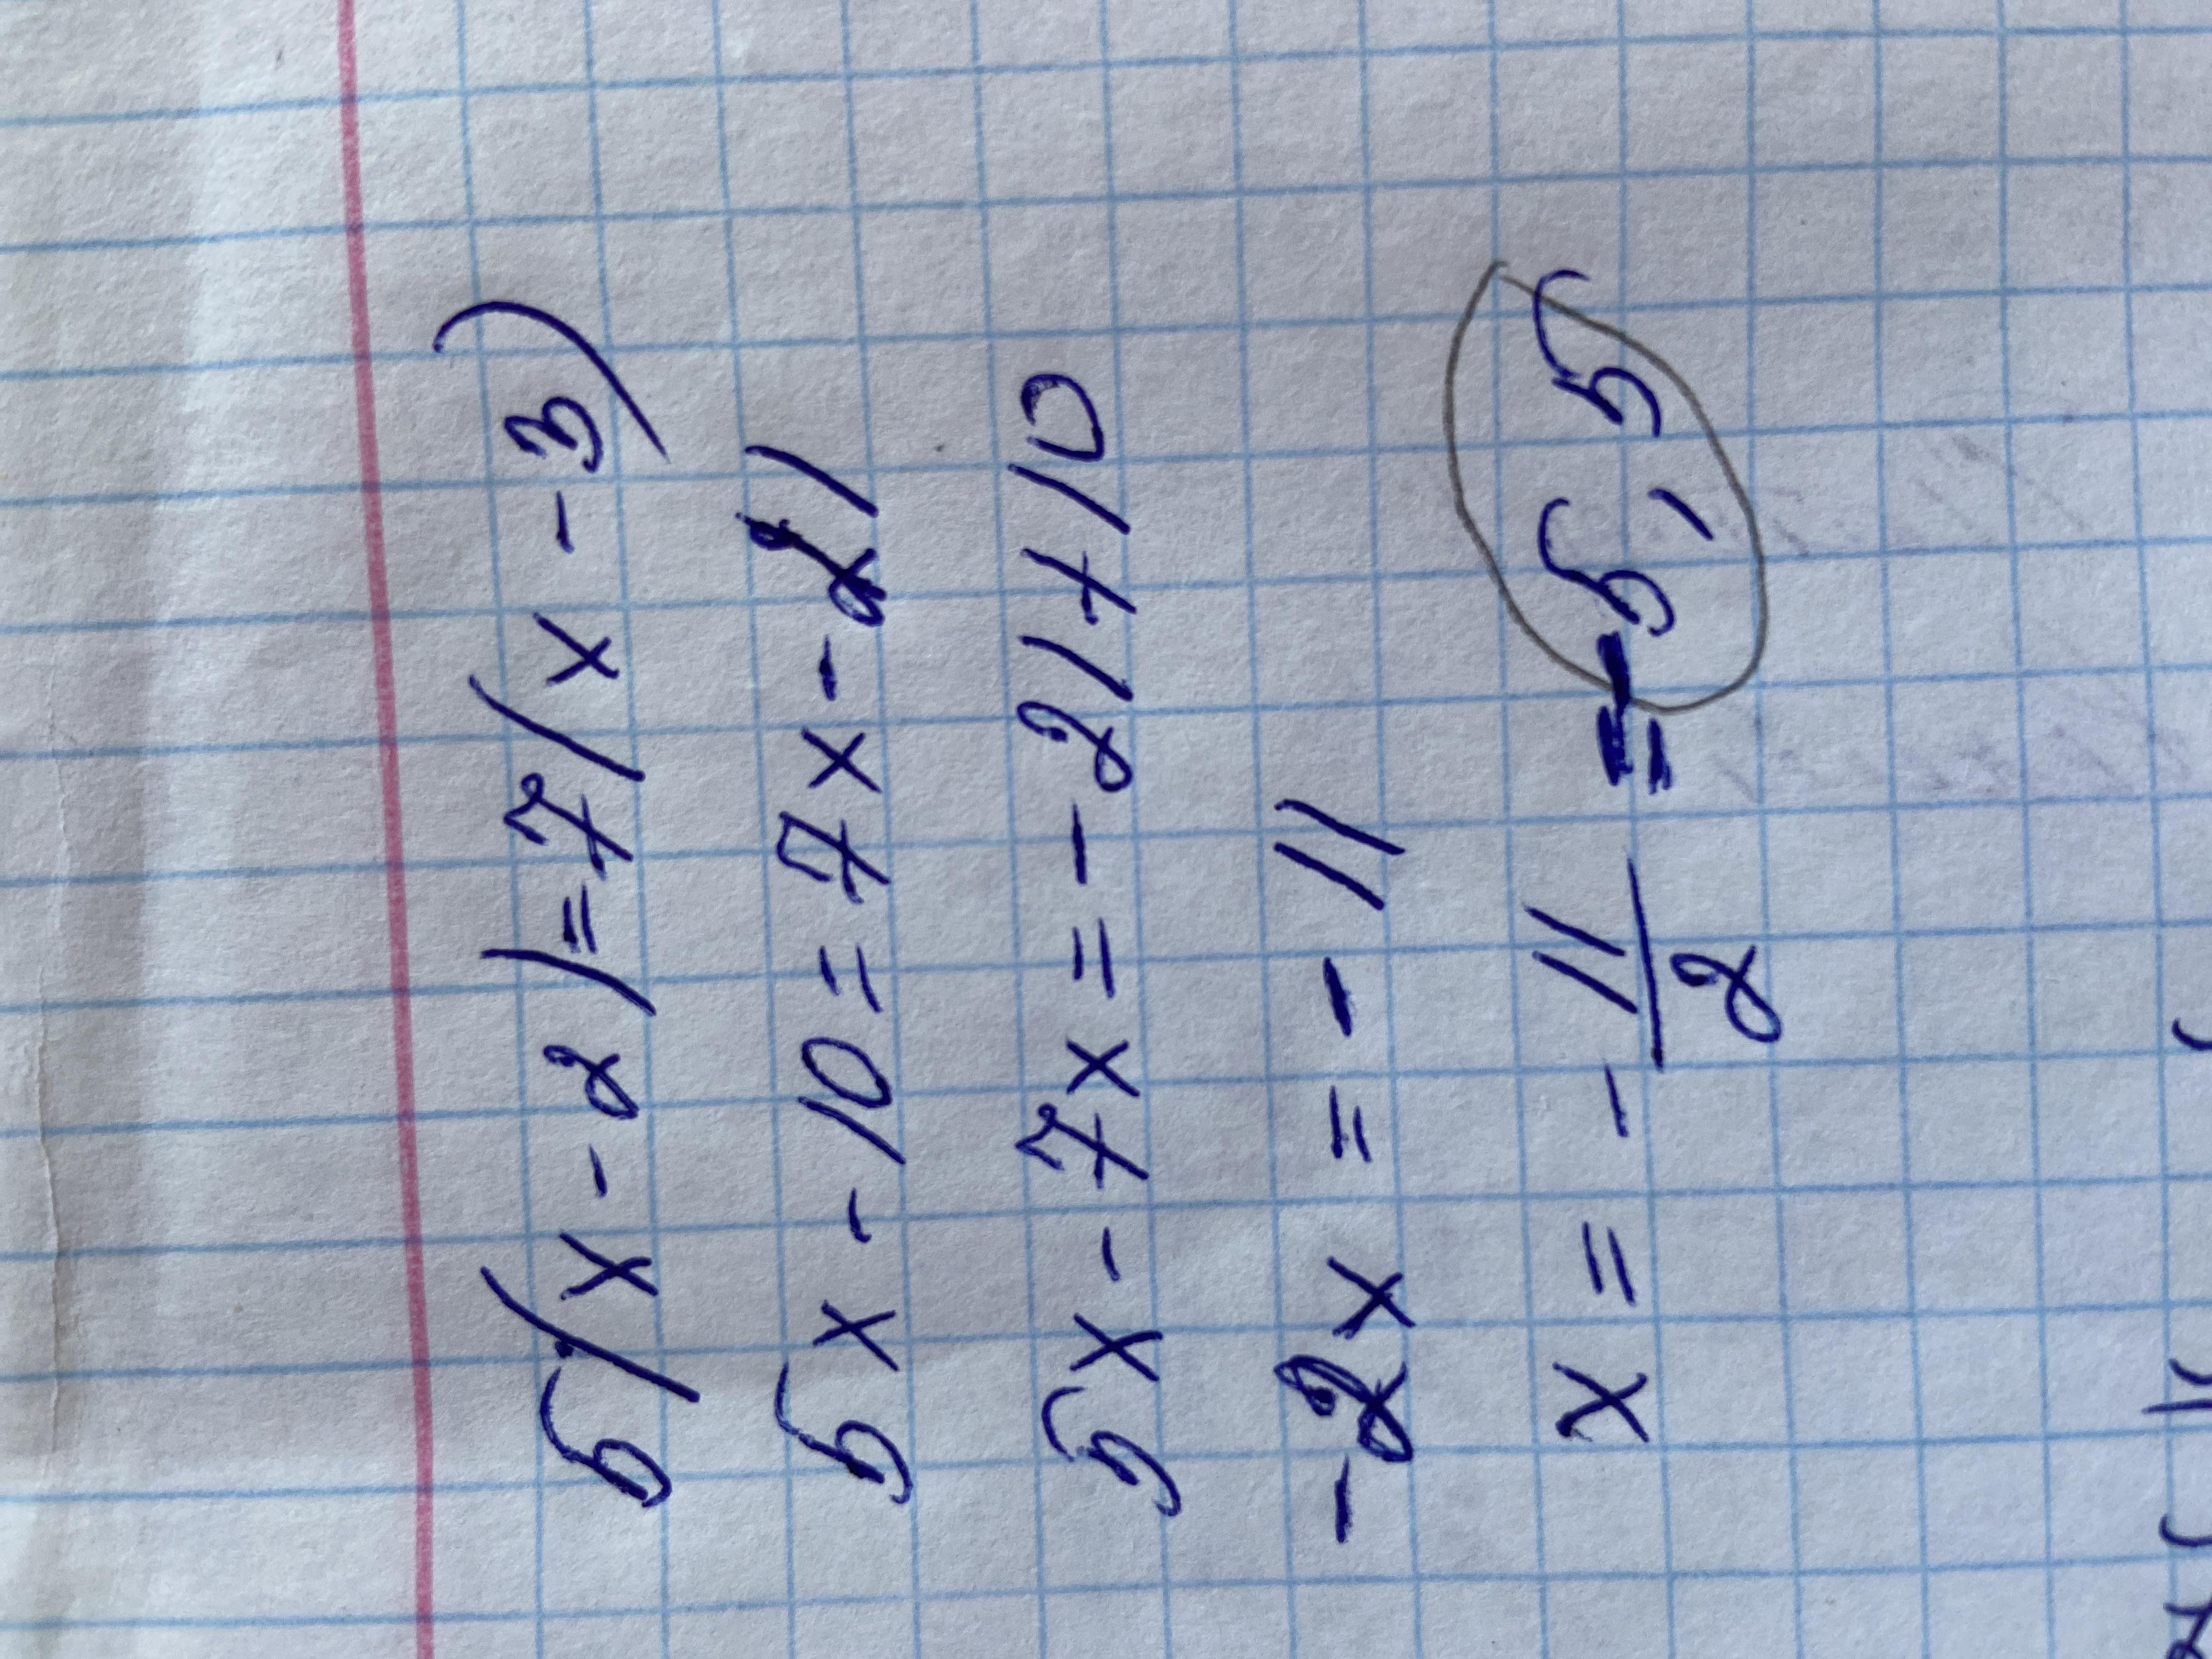 5(x - 2) = 7(x - 3)
5x - 10 = 7x - 21
5x - 7x = - 21 + 10
-2x = - 11
x = - 11/2 = 5,5